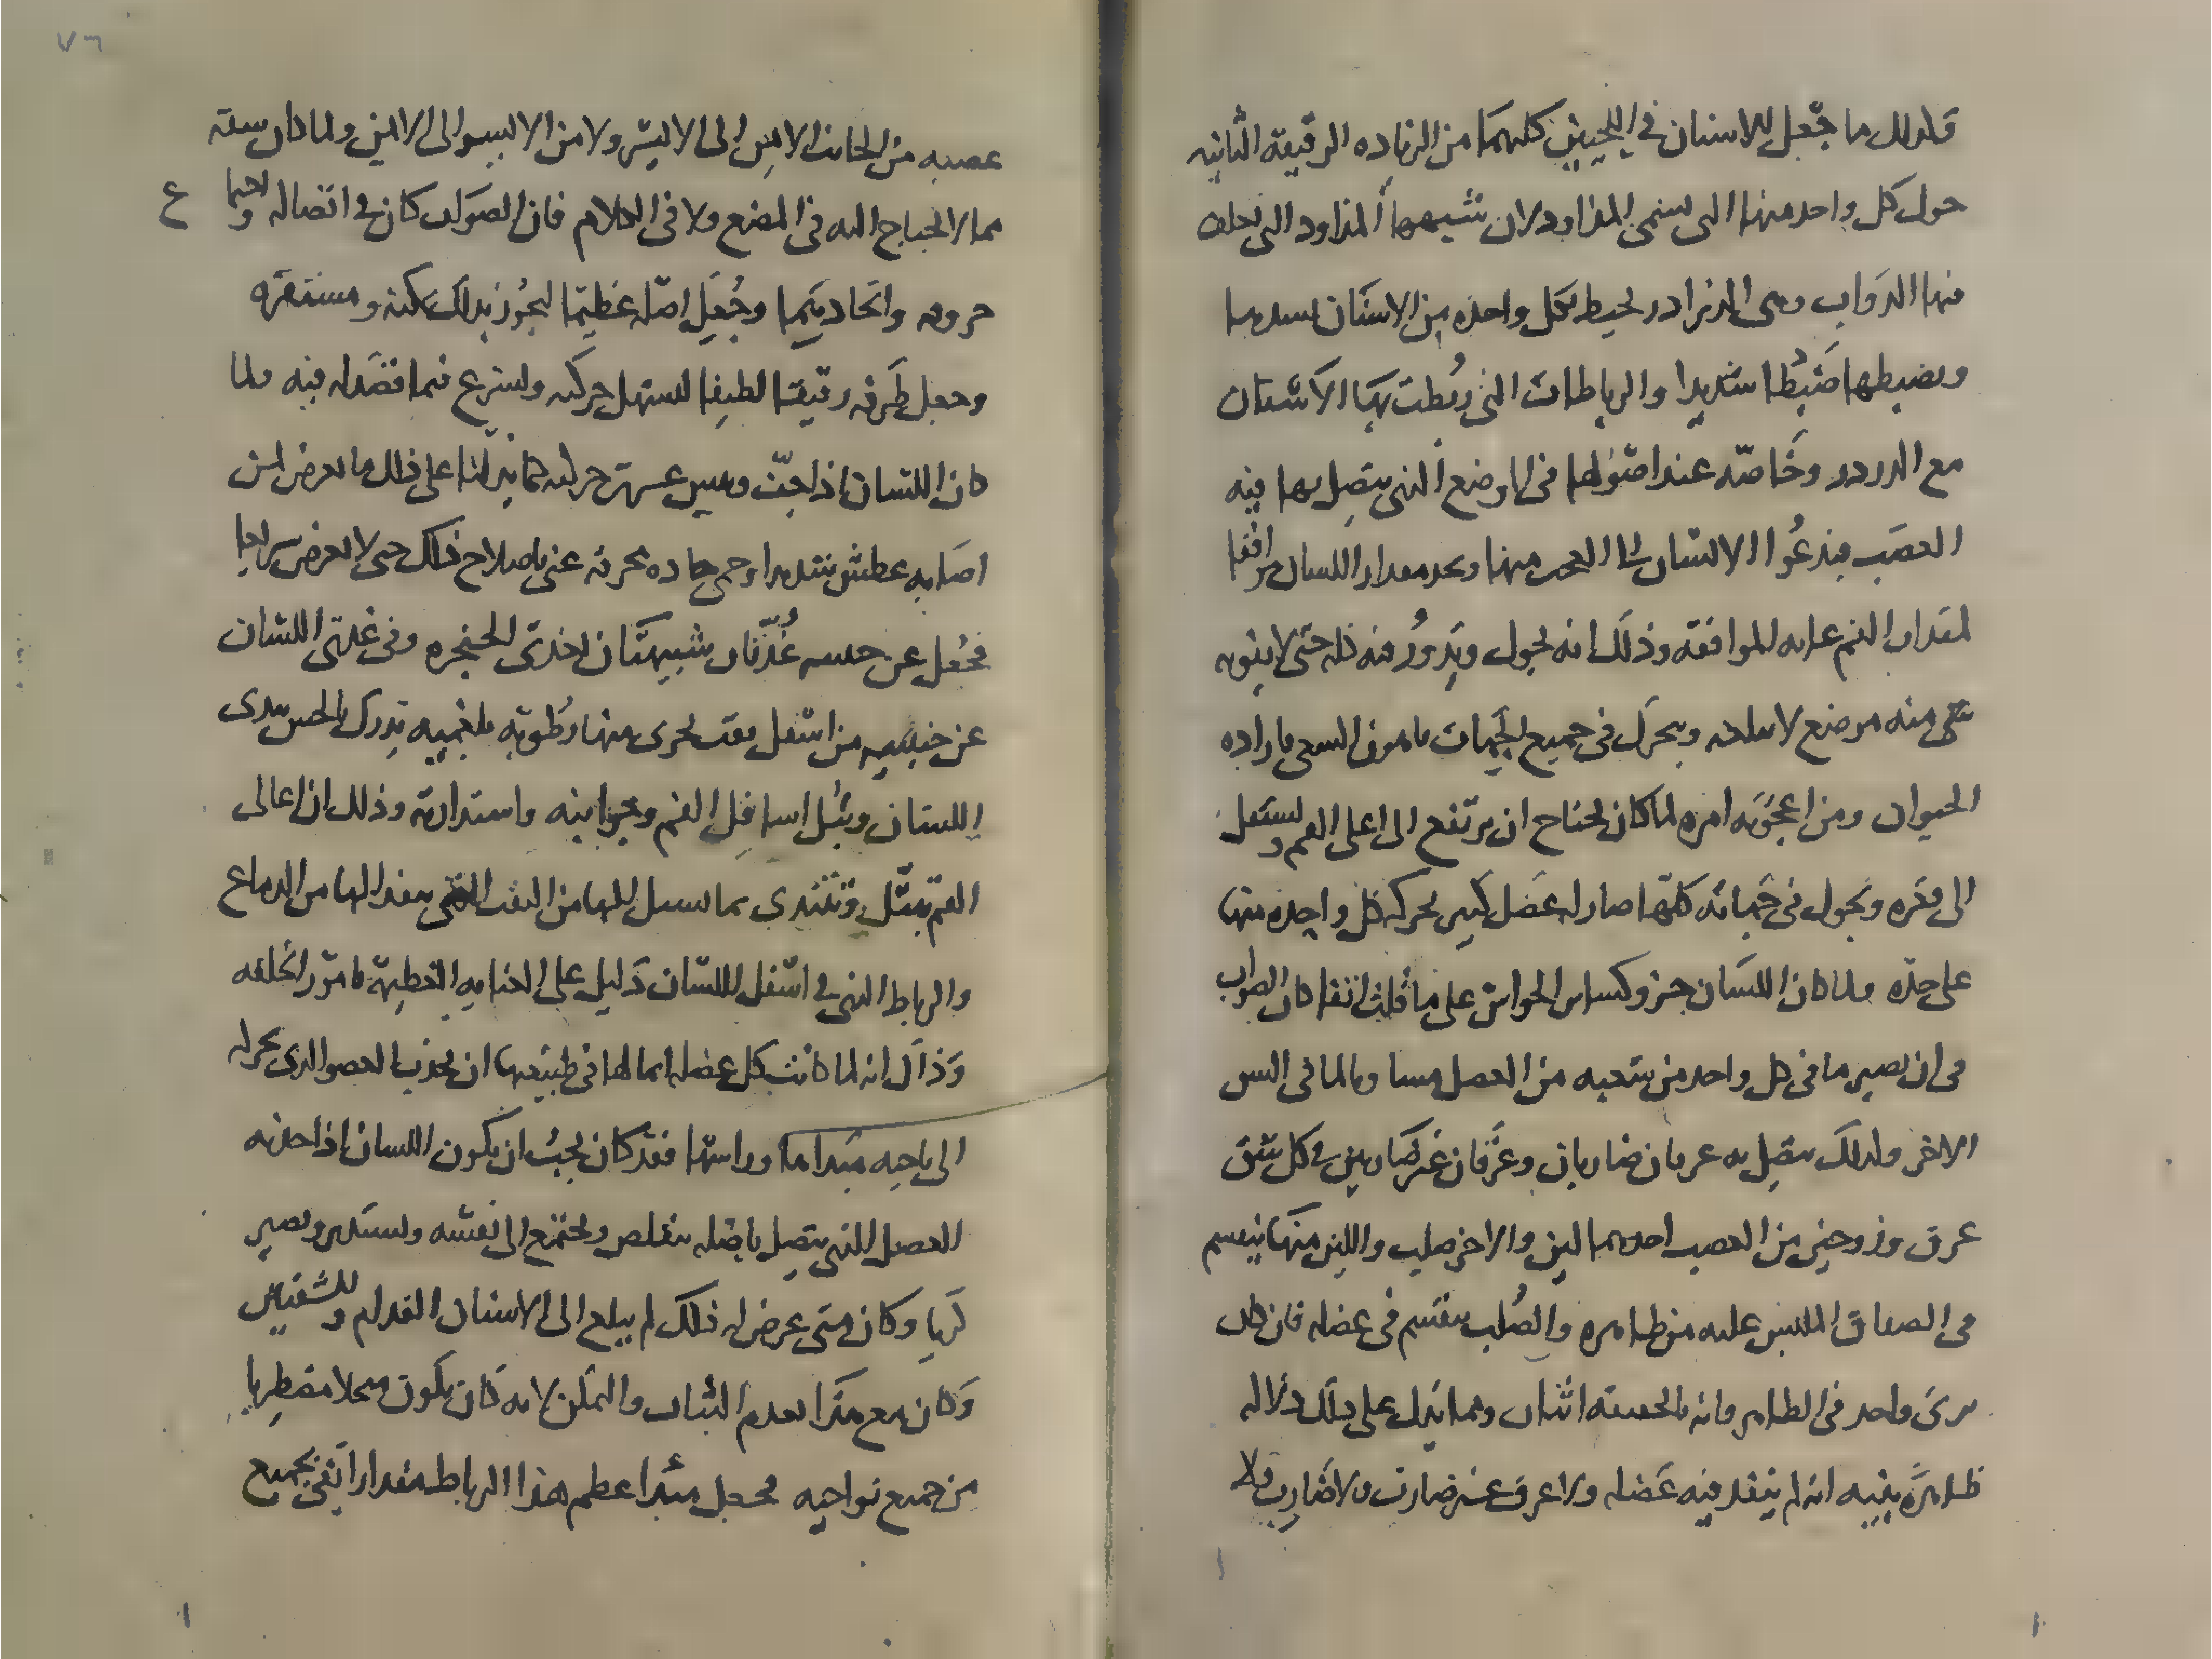 فلذلك ما جعل للاسنان في اللحيين كلهما من الزياده الرقيقة الثانيه
حول كل واحد منها التى تسمى المذاود لان شبيهها المذاود التى تعلف
فيها الدواب وهى الدرادر لحيط بكل واحده من الاسنان يسدها
ويضبطها ضبطا شديدا والرباطات التى ربطت بها الاسنان
مع الدردر وخاصه عند اصولها في الموضع الذي يتصل بها فيه
العصب يدعوا الانسان الى العجب منها وتجد مقدار اللسان موافقا
لمقدار الفم غايه الموافقه وذلك انه يجول ويدور فيه كله حتى لا يفوته
شي منه موضع لا يبلغه ويتحرك في جميع الجهات باهون السعى باراده
الحيوان ومن اعجوبه امره لما كان يحتاج ان يرتفع الى اعلى الفم ويستفل
الى قعره ويجول في جهاته كلها صار له عضل كثير يحركه كل واحده منها
على حده ولما كان اللسان جزو كساير الحواس على ما قلت انفا كان الصواب
في ان يصير ما في كل واحد من شقيه من العضل مساويا لما في الشق
الاخر ولذلك يتصل به عرقان ضاربان وعرقان غير ضاربين في كل شق
عرق وزوجين من العصب احدهما لين والاخر صلب واللين منها ينقسم
في الصفاق الملبس عليه من ظاهره والصلب ينقسم في عضله فان كان
يرى واحد في الظاهر فانه بالحقيقه اثنان ومما يدل على ذلك دلاله
ظاهره بينه انه لم ينفد فيه عضله ولا عرق غير ضارب ولا ضارب ولا
٧٦
عصبه من الجانب الايمن الى الايسر ولا من الايسر الى الايمن ولما كان سعته
مما لا يحتاج اليه في المضغ ولا في الكلام فان الصواب كان في اتصاله واحما
ع
حروفه واتحاد بينهما وجعل اصله عظيما ليحوز بذلك تمكنه ومستقره
وجعل طرفه رقيقا لطيفا لتسهل حركته وليسرع فيما قصد له فيه ولما
كان اللسان اذا جف ويبس عسرت حركته كما يدلنا على ذلك ما يعرض لمن
اصابه عطش شديد او حمى حاده محرقه عنى باصلاح ذلك حتى لا يعرض سريعا
فجعل عن جنبيه غدتان شبيهتان احدى الحنجره وفي غدتى اللسان
عن جنبيه من اسفل ثقب يجرى منها رطوبه بلغميه تدرك بالحس يندى
اللسان ويبل اسافل الفم وجوانبه واستدارته وذلك ان اعالى
الفم تبتل وتتندى بما يسيل اليها من الثقب التى ينفد اليها من الدماغ
والرباط الذي في اسفل اللسان دليل على العنايه العظيمة بامور الخلقه
وذاك انه لما كانت كل عضله انما لها في طبيعتها ان يجذب العضو الذى يحركه
الى ناحيه مبداها وراسها فقد كان يجب ان يكون اللسان اذا جذبه
العضل الذي يتصل باصله يتقلص ويجتمع الى نفسه ويستدير ويصير
كريا وكان متى عرض له ذلك لم يبلغ الى الاسنان القدام وللشفتين
وكان مع هذا يعدم الثبات والتمكن لانه كان يكون منحلا مضطربا
من جميع نواحيه فجعل مبدا عظم هذا الرباط مقدارا يفى بجميع